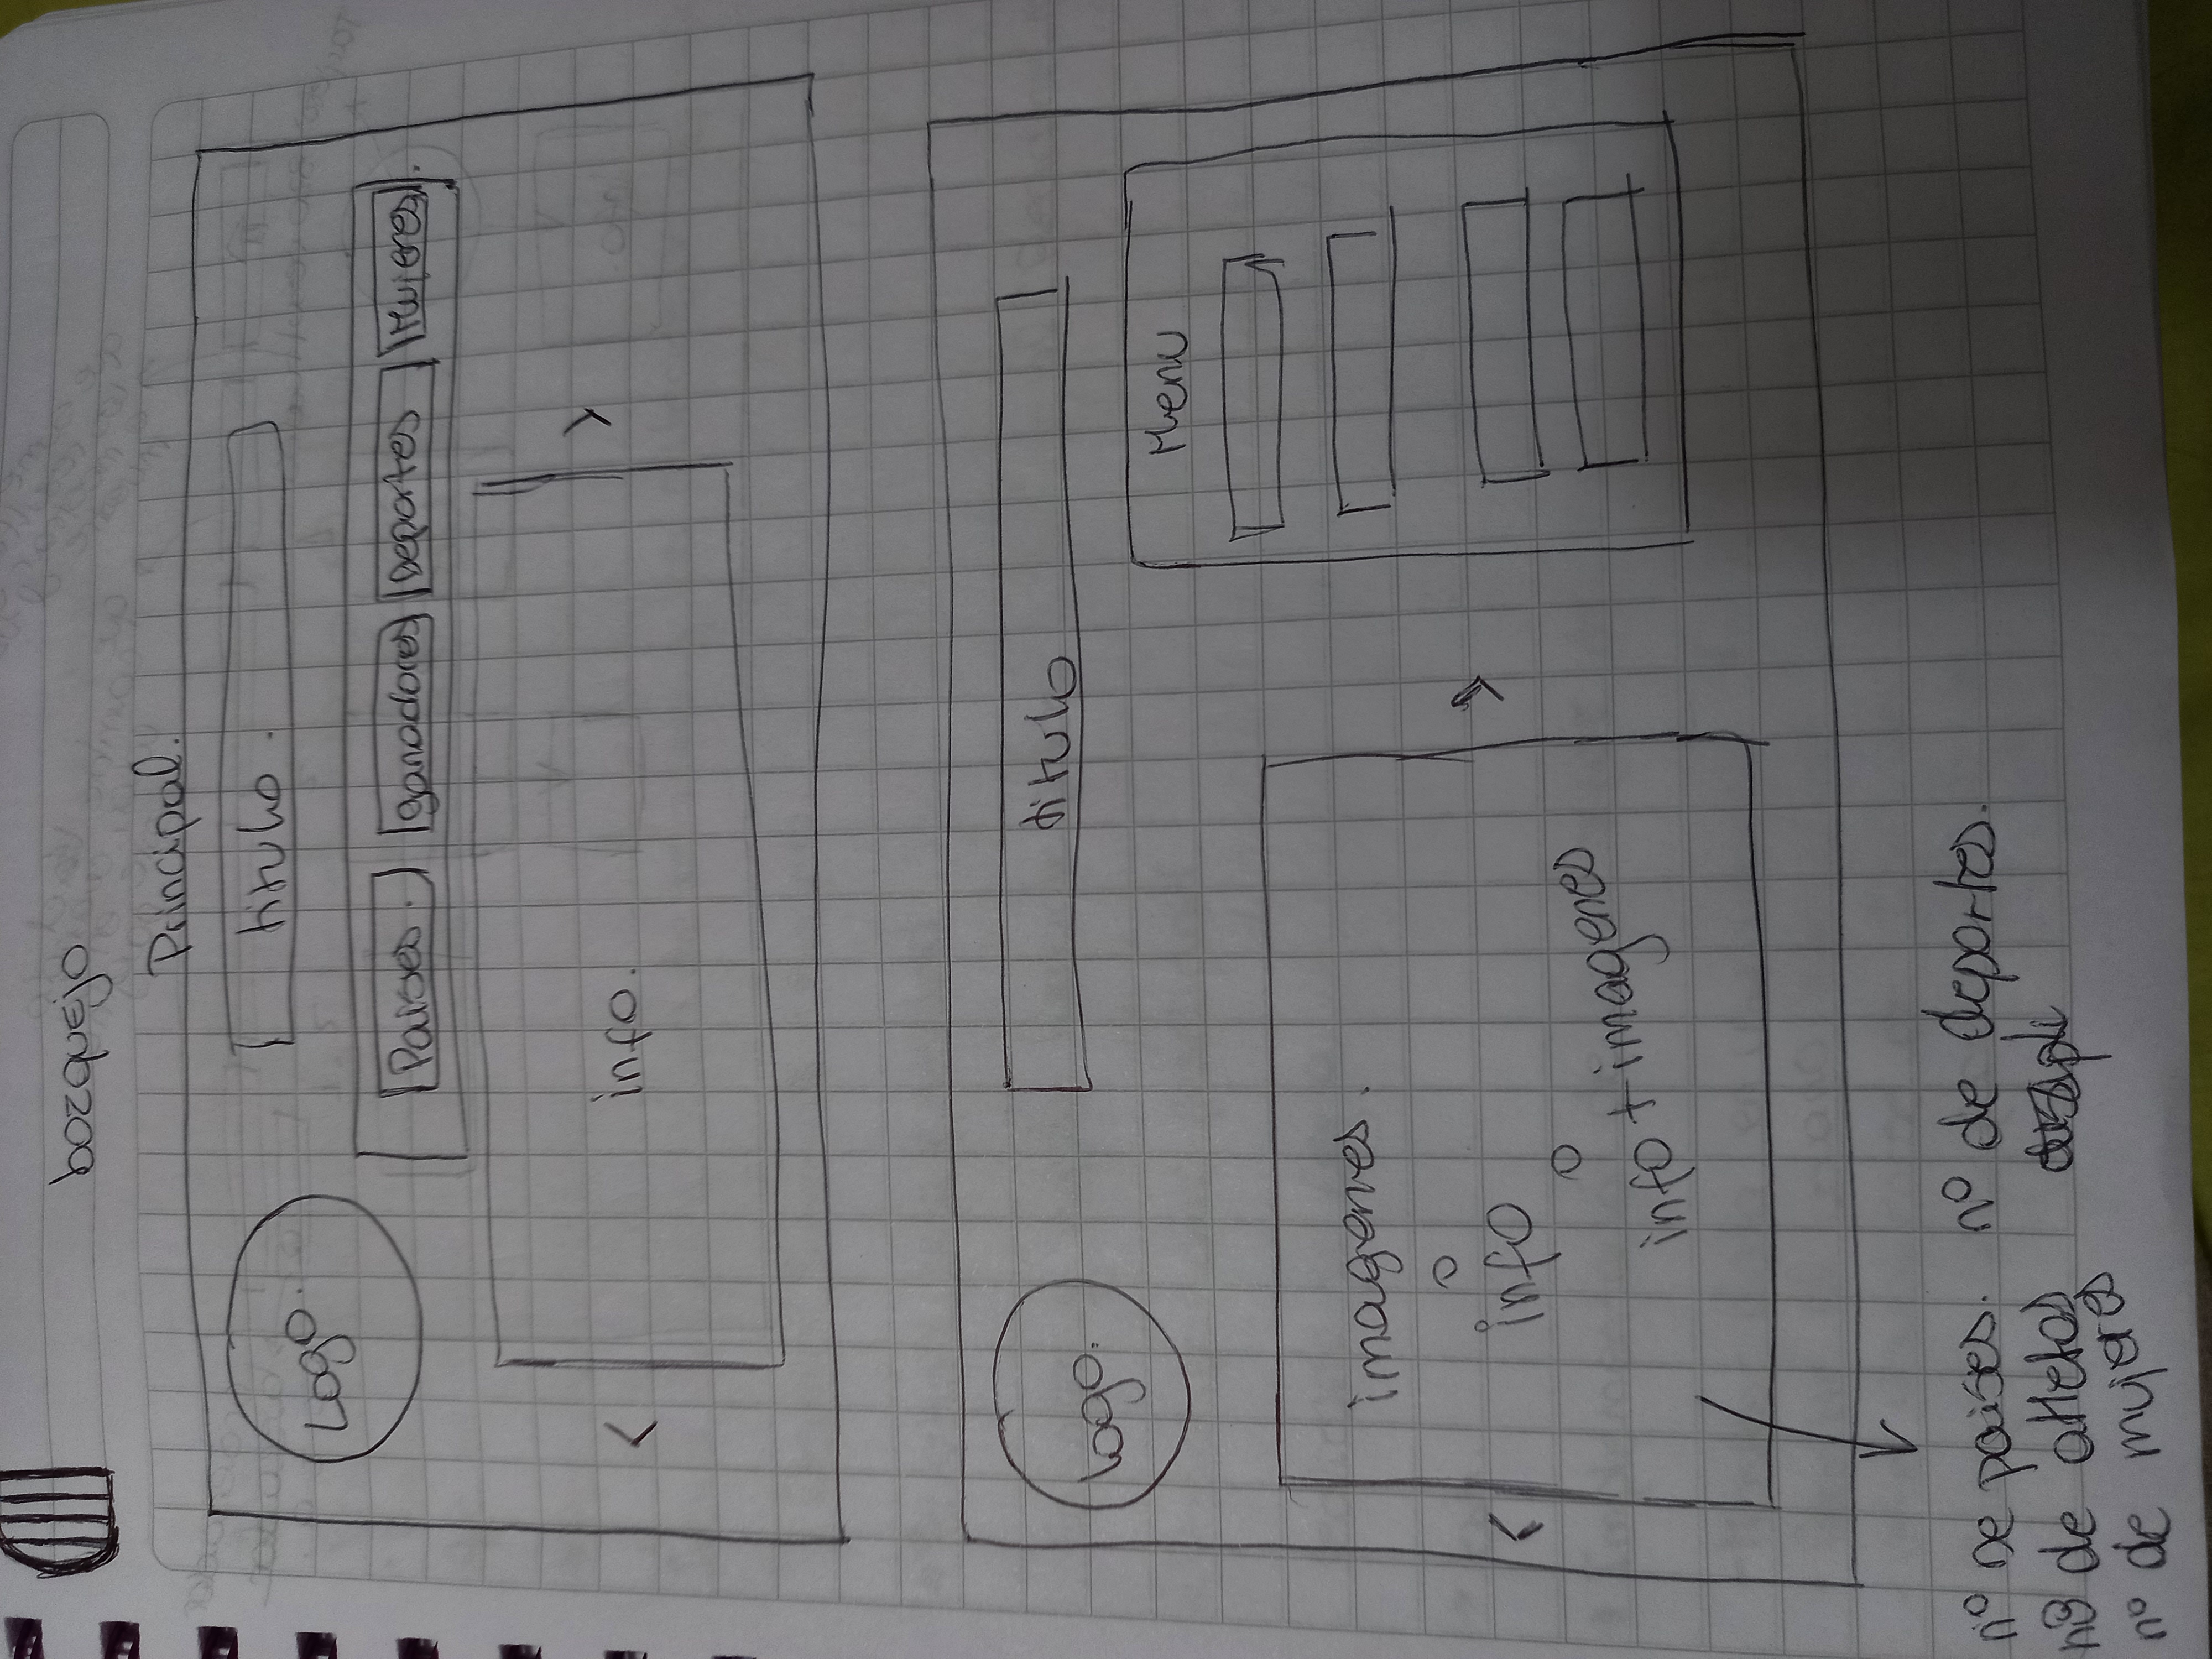 bozquejo
Principal.
Logo.
titulo.
Paises. ganadores Deportes Mujeres.
< info. >
logo.
titulo
Menu
imagenes.
o
info
< >
o
info + imagenes
nº De paises. nº de deportes.
nº de atletas
nº de mujeres